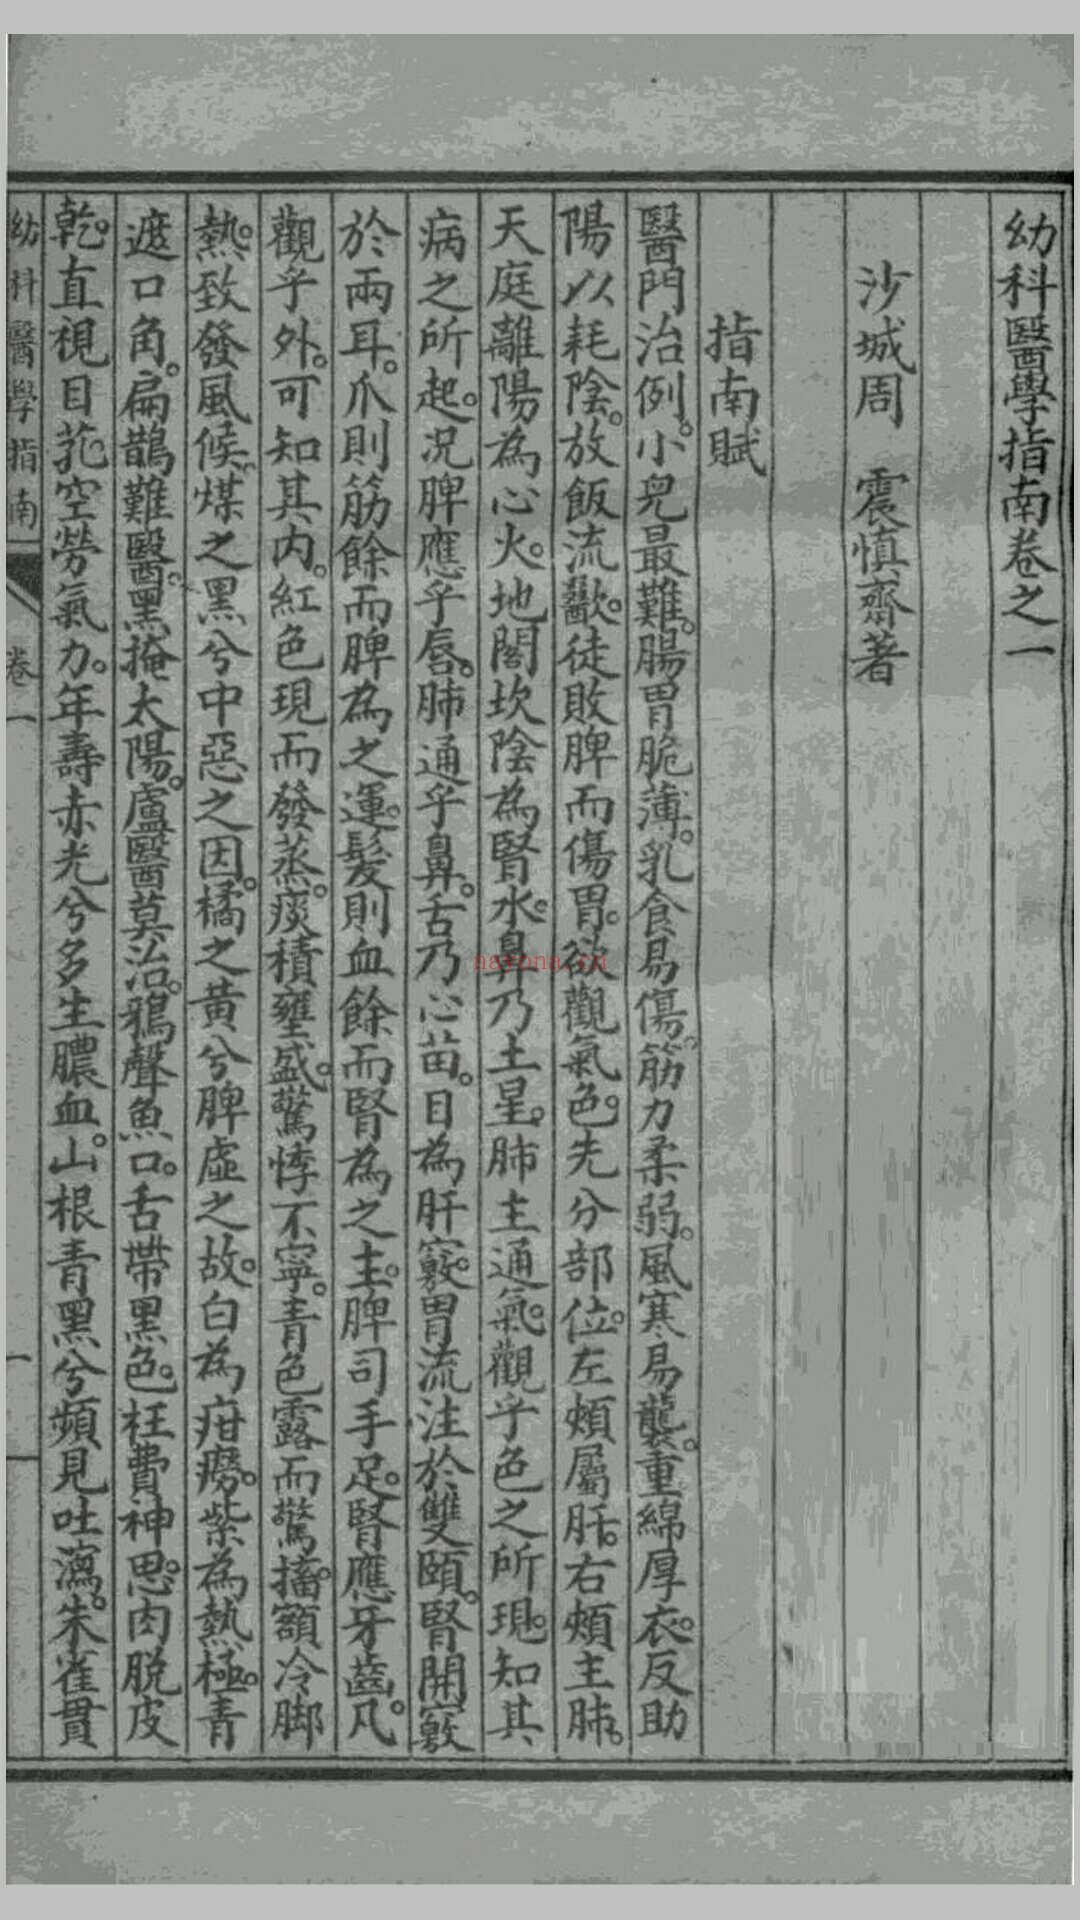 幼科醫學指南卷之一
沙城周　震慎齋著
指南賦
醫門治例。小兒最難。腸胃脆薄。乳食易傷。筋力柔弱。風寒易襲。重綿厚衣。反助
陽以耗陰。放飯流歠。徒敗脾而傷胃。欲觀氣色。先分部位。左頰屬肝。右頰主肺。
天庭離陽為心火。地閣坎陰為腎水。鼻乃土星。肺主通氣。觀乎色之所現。知其
病之所起。况脾應乎唇。肺通乎鼻。舌乃心苗。目為肝竅。胃流注於雙頤。腎開竅
於兩耳。爪則筋餘而脾為之運。髮則血餘而腎為之主。脾司手足。腎應牙齒。凡
觀乎外。可知其内。紅色現而發蒸。痰積壅盛。驚悸不寧。青色露而驚搐。額冷脚
熱。致發風候。煤之黑兮中惡之因。橘之黃兮脾虛之故。白為疳癆。紫為熱極。青
遮口角。扁鵲難醫。黑掩太陽。盧醫莫治。鴉聲魚口。舌帶黑色。枉費神思。肉脱皮
乾。直視目𦭽。空勞氣力。年壽赤光兮多生膿血。山根青黑兮頻見吐瀉。朱雀貫
幼科醫學指南　卷一　一
nayona.cn